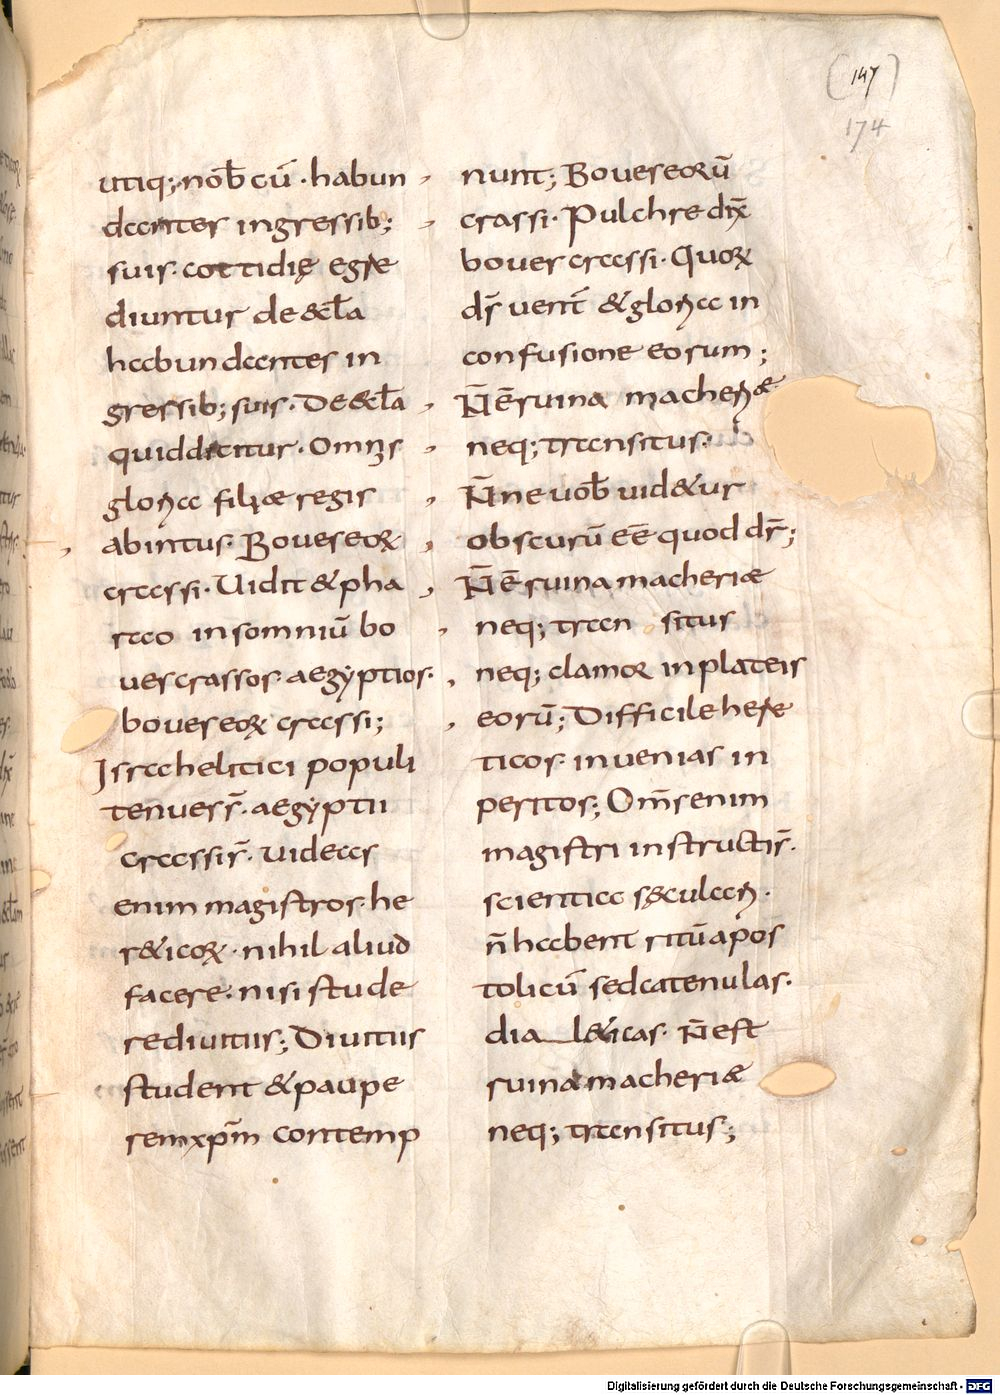 (147)
174
utiq; nob̅ cū · habun
danter ingressib;
suis · cottidię egre
diuntur de &cl̅a
habundantes in
gressib; suis · De &cl̅a
quid dicitur · Omnis
gloria filiae regis
abintus · Boues eoꝝ
crassi · Uidit & pha
rao insomniū bo
ues crassos · aegyptios ·
boues eoꝝ crassi;
Israhelitici populi
tenues s̅ · aegyptii
crassi s̅ · uideas
enim magistros · he
r&icoꝝ · nihil aliud
facere · nisi stude
re diuitiis; Diuitiis
student & paupe
rem xp̅m contemp
nunt; Boues eorū
crassi · Pulchre dix̅
boues crassi · Quoꝝ
dr̅ uent̅ & gloria in
confusione eorum;
N̅ ē ruina macheriae
neq; transitus ·
N̅ne uob̅ uid&ur
obscurū eē quod dr̅;
N̅ ē ruina macheriae
neq; tran situs
neq; clamor in plateis
eorū; Difficile here
ticos · inuenias in
peritos; Om̅s enim
magistri instructi s̅ ·
scientia sęculari ·
n̅ habent ritū apos
tolicū sed catenulas ·
dia l&icas · N̅ est
ruina macheriae
neq; transitus;
Digitalisierung gefördert durch die Deutsche Forschungsgemeinschaft - DFG